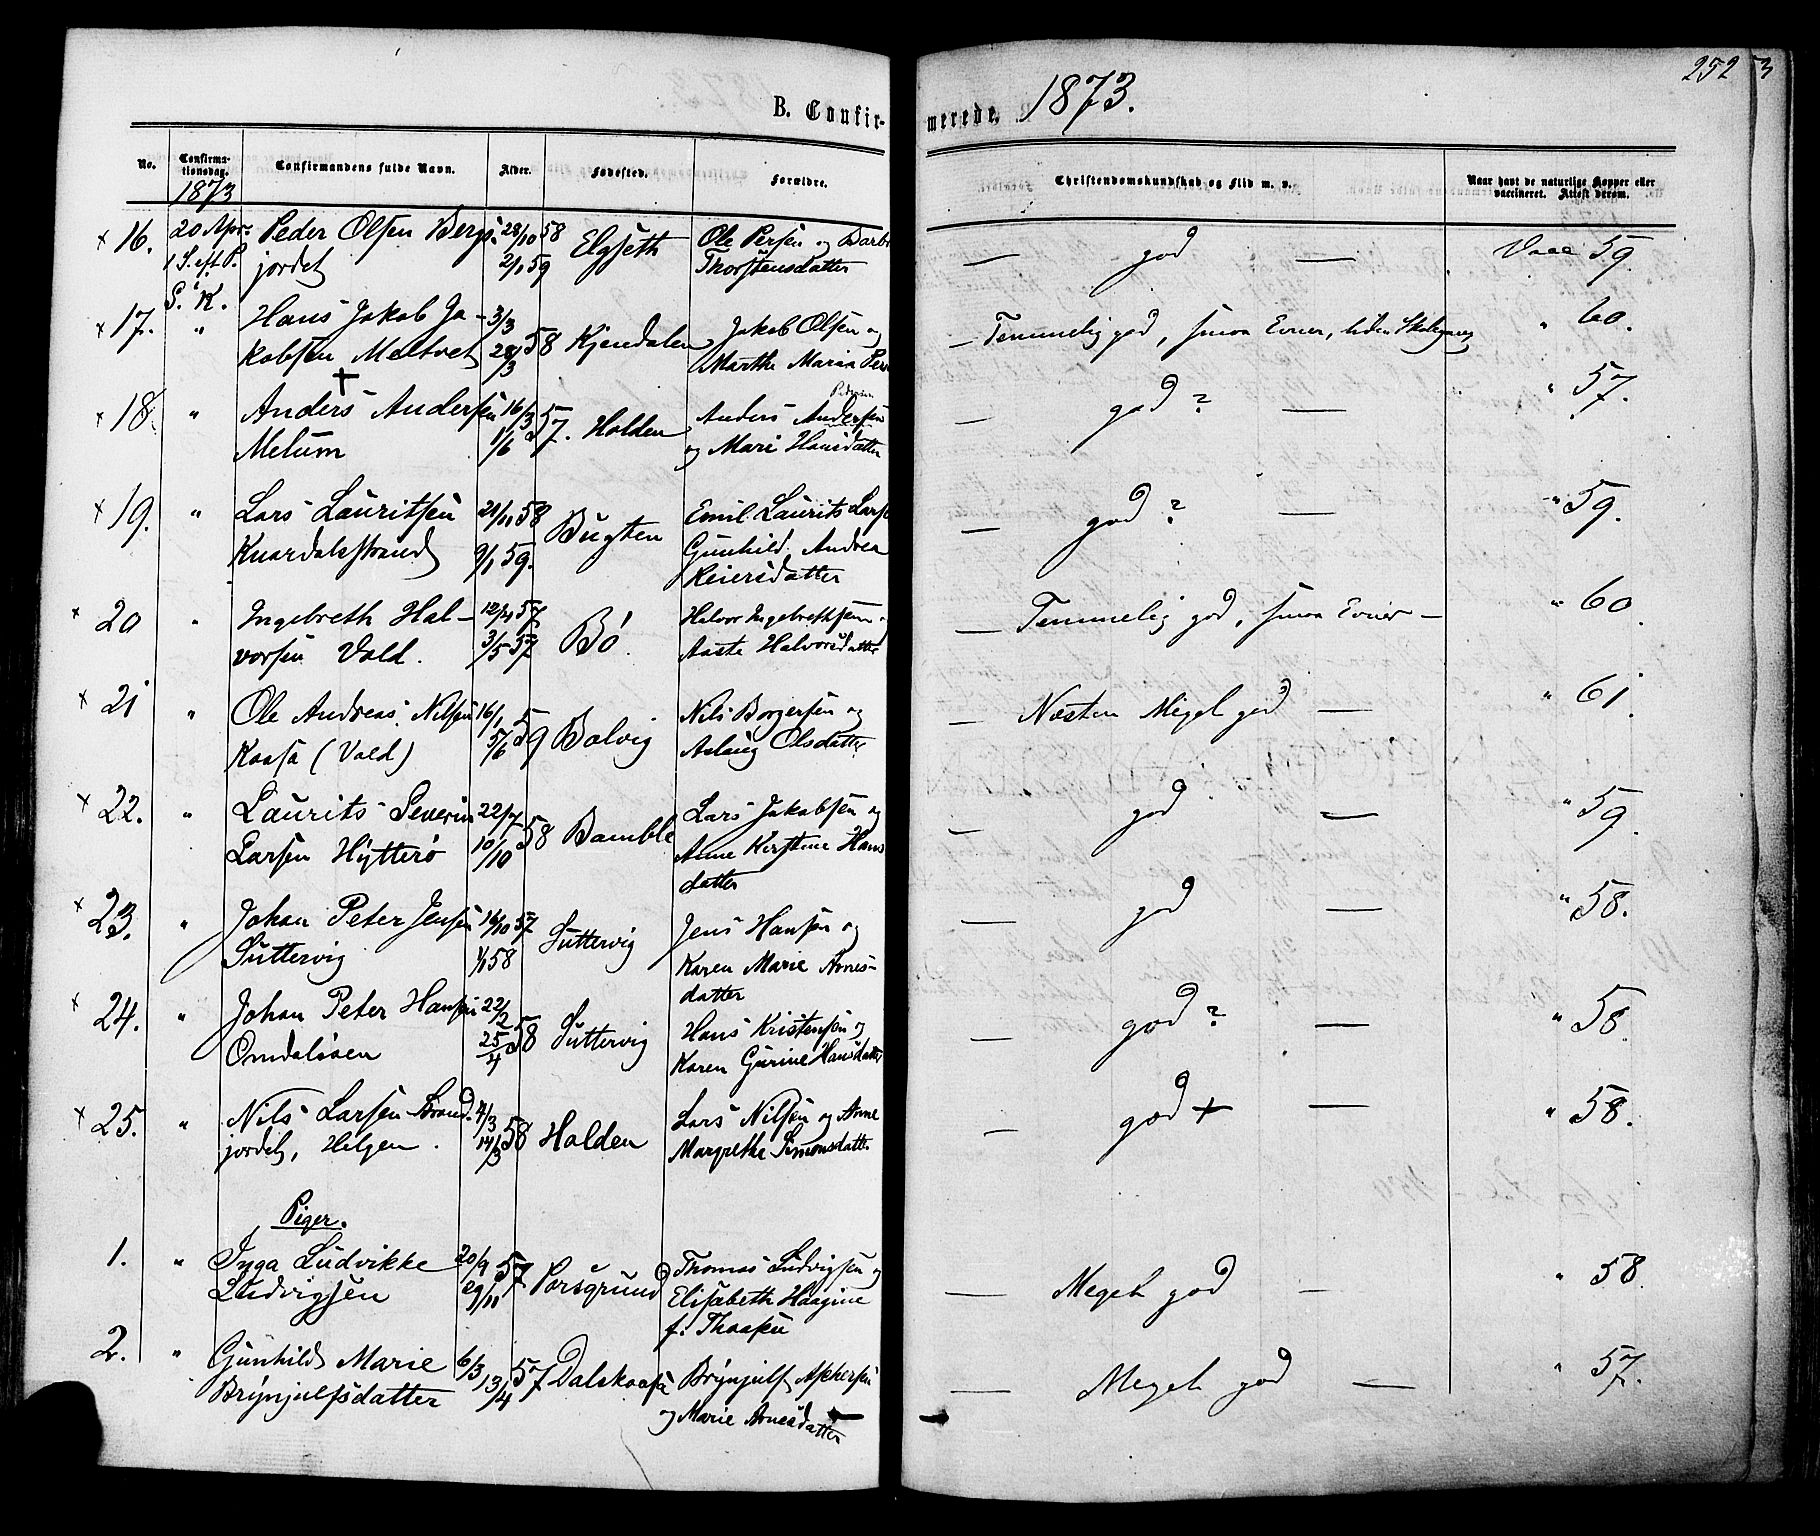 B. Confirmerede. 1873. 252
No. Confirmationsdag. Confirmandens fulde Navn. Alder. Fødested. Forældre. Christendomskundskab og Flid m. v. Naar havt de naturlige Kopper eller vaccineret. Attest derom.
1873
16. 20 Apr. Peder Olsen Bergs- 28/10 58 Elgseth Ole Persen og Barb — god — Vacc 59.
1 S. eft. P. jordet 2/1 59 Thorstensdatter
S. K.
17. " Hans Jakob Ja- 3/3 58 Kjendalen Jakob Olsen og — Temmelig god, smaa Evner, liden Skolegang " 60.
kobsen Meltvet 28/3 Marthe Maria Pers
18. " Anders Andersen 16/3 57. Holden Anders Andersen — god? — " 57.
Melum 1/6 og Mari Hansdatter
19. " Lars Lauritsen 21/11 58 Bugten Emil Laurits Larse — god? — " 59.
Knardalsstrand 9/1 59. Gunhild Andrea
Reiersdatter
20 " Ingebreth Hal- 12/4 57 Bö. Halvor Ingebrethsen — Temmelig god, smaa Evner — " 60.
vorsen Vold. 3/5 57 Aaste Halvorsdatter
21 " Ole Andreas Nilsen 16/1 59 Bolvig Nils Borgersen og — Næsten Meget god — " 61.
Kaasa (Vold) 5/6 Aslaug Olsdatter
22. " Laurits Severin 22/7 58 Bamble Lars Jakobsen og — god — " 59.
Larsen Hytterø 10/10 Anne Kirstine Hans
datter
23. " Johan Peter Jensen 16/10 57 Suttervig Jens Hansen og — god — " 58.
Suttervig 1/1 58 Karen Marie Arnes-
datter
24. " Johan Peter Hansen 22/2 58 Suttervig Hans Kristensen og — god? — " 58.
Omdalsøen 25/4 Karen Gurine Hansdatter
25. " Nils Larsen Strand- 4/3 58 Holden Lars Nilsen og Anne — god + — " 58.
jordet, Helgen. 14/3 Margrethe Simonsdatter
Piger.
1. " Inga Ludvikke 20/9 57 Porsgrund Thomas Ludvigsen og — Meget god — " 58.
Ludvigsen 29/11 Elisabeth Haagine
f. Thoasen
2. " Gunhild Marie 6/3 57 Dalskaasa Brynjulf Askersen — Meget god — " 57.
Brynjulfsdatter 13/4 og Marie Arnesdatter